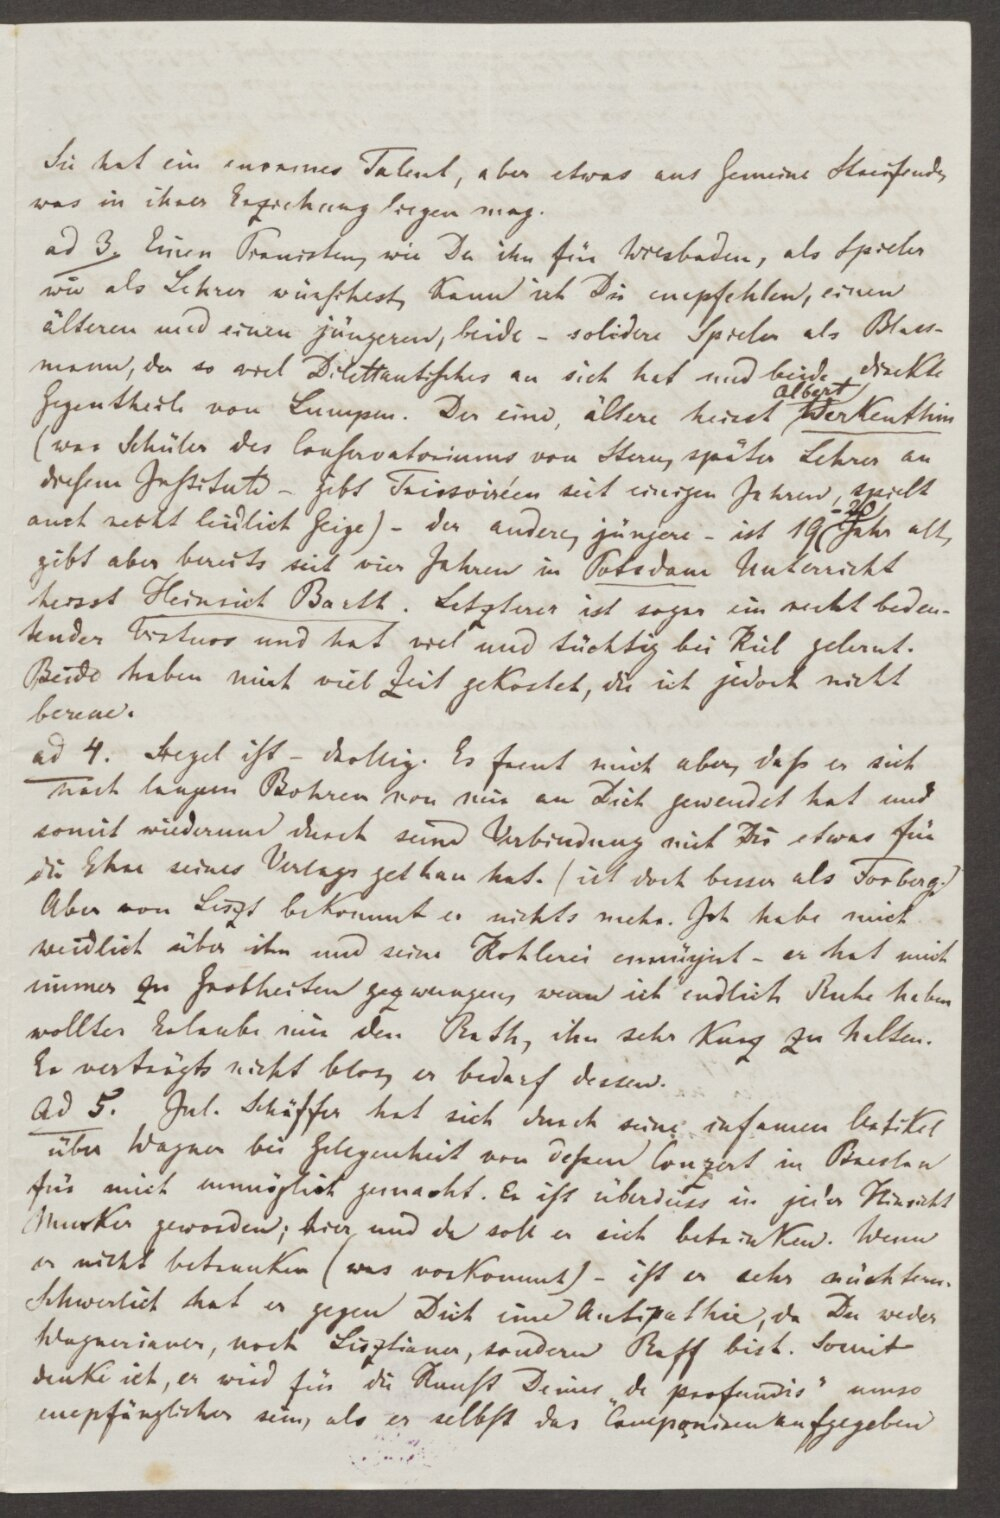 Sie hat ein enormes Talent, aber etwas ans Gemeine Streifendes
was in ihrer Erziehung liegen mag.
ad 3. Einen Pianisten, wie Du ihn für Wiesbaden, als Spieler
wie als Lehrer wünschest, kann ich Dir empfehlen, einen
älteren und einen jüngeren, beide – solidere Spieler als Blass-
mann, der so viel Dilettantisches an sich hat und beide direkte
Gegentheile von Lumpen. Der eine, ältere heisst Albert Werkenthin
(war Schüler des Conservatoriums von Stern, später Lehrer an
diesem Institute – gibt Triosoiréen seit einigen Jahren, spielt
auch recht leidlich Geige) – der andere, jüngere – ist 19-20 Jahr alt,
gibt aber bereits seit vier Jahren in Potsdam Unterricht
heisst Heinrich Barth. Letzterer ist sogar ein recht bedeu-
tender Virtuos und hat viel und tüchtig bei Kiel gelernt.
Beide haben mich viel Zeit gekostet, die ich jedoch nicht
bereue.
ad 4. Siegel ist – drollig. Es freut mich aber, daß er sich
nach langem Bohren von mir an Dich gewendet hat und
somit wiederum durch seine Verbindung mit Dir etwas für
die Ehre seines Verlags gethan hat. (ist doch besser als Forberg.)
Aber von Liszt bekommt er nichts mehr. Ich habe mich
weidlich über ihn und seine Kohlerei ennüyirt – er hat mich
immer zu Grobheiten gezwungen, wenn ich endlich Ruhe haben
wollte. Erlaube mir den Rath, ihn sehr kurz zu halten.
Er verträgts nicht blos, er bedarf dessen.
Ad 5. Jul. Schäffer hat sich durch seine infamen Artikel
über Wagner bei Gelegenheit von deßen Conzert in Breslau
für mich unmöglich gemacht. Er ist überdiess in jeder Hinsicht
Mucker geworden; hier und da soll er sich betrinken. Wenn
er nicht betrunken (was vorkommt) – ist er sehr nüchtern.
Schwerlich hat er gegen Dich eine Antipathie, da Du weder
Wagnerianer, noch Lisztianer, sondern Raff bist. Somit
denke ich, er wird für die Kunst Deines „de profundis" umso
empfänglicher sein, als er selbst das Componiren aufgegeben